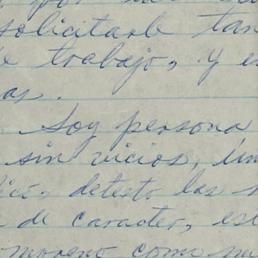 solicitarle tan
de trabajo, y e
as.
Soy persona
sin vicios,
detesto las
de caracter, es
moreno como